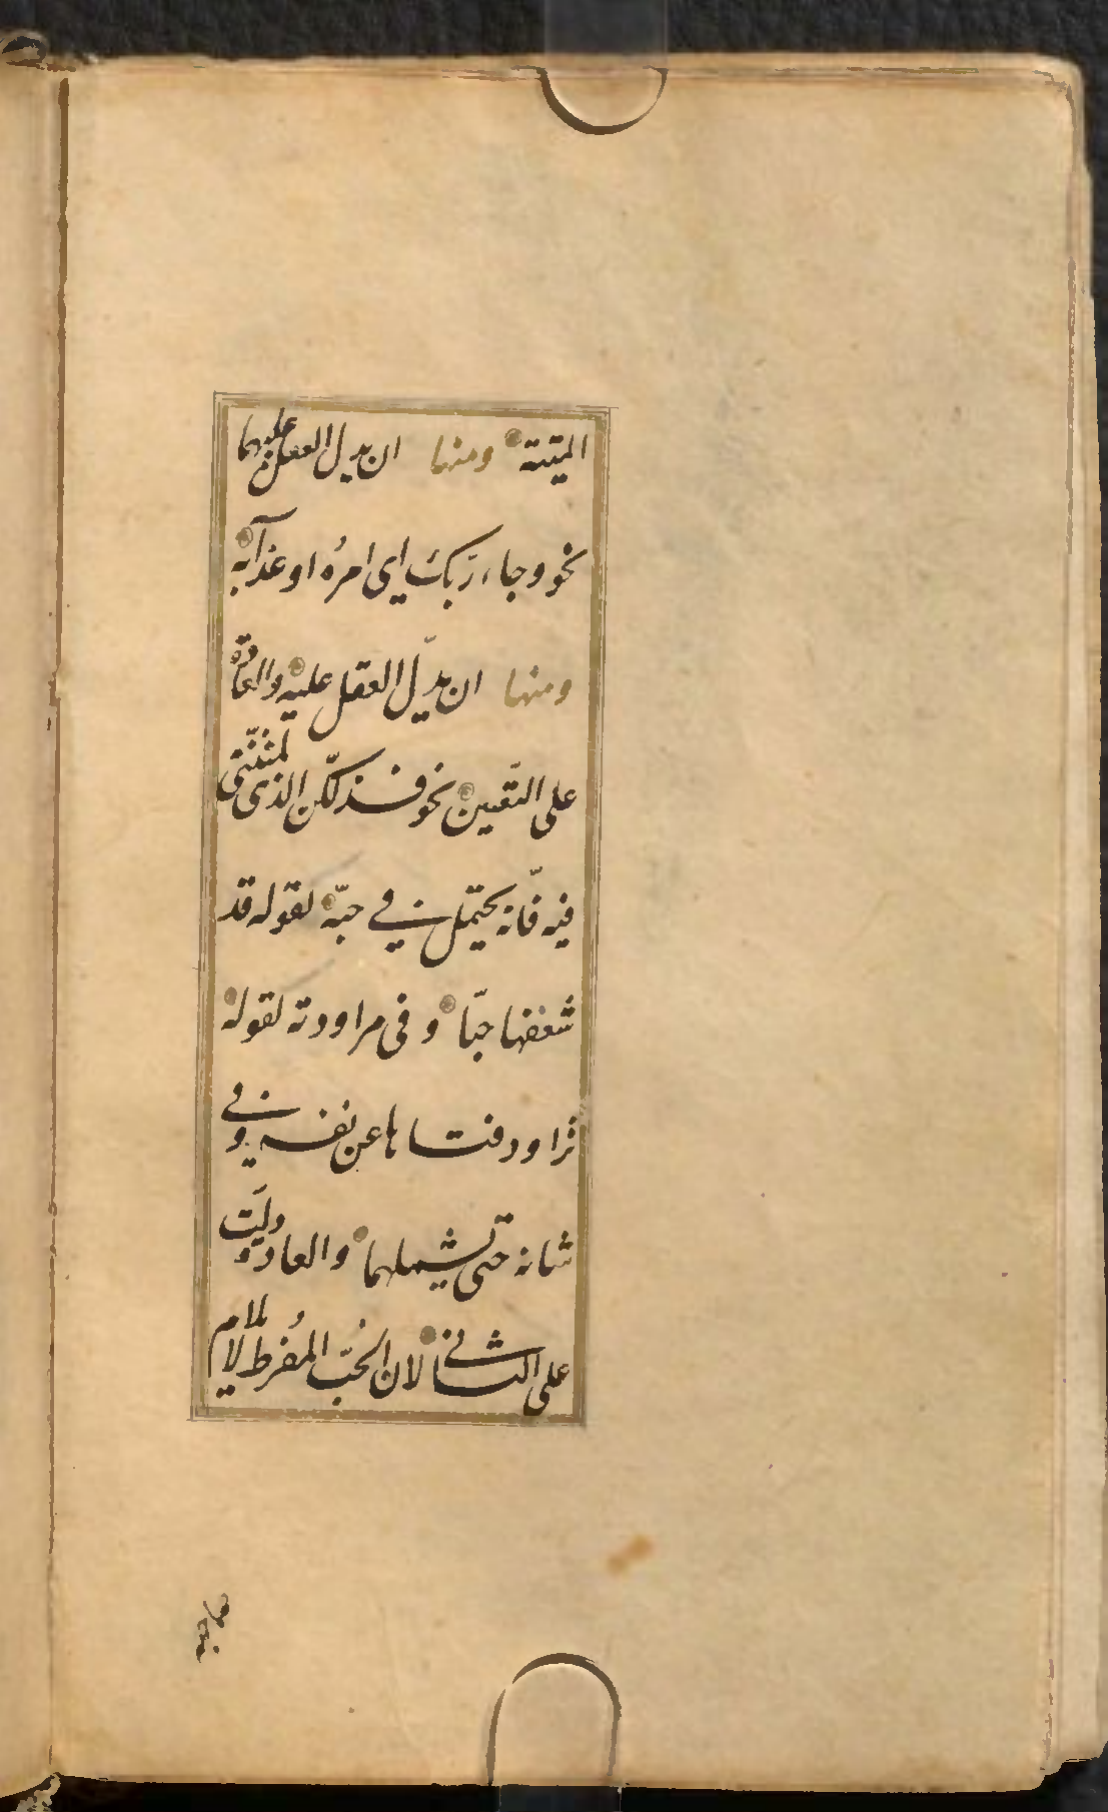 الميتة ومنها ان يدل العقل عليهما
نحو وجاء ربّك اى امرُه او عذابه
ومنها ان يدلّ العقل عليه والعادة
على التعّيين نحو فذلكّن الذى لمتننّى
فيه فانّه يحتمل فى حبّه لقوله قد
شغفها حبّا وفى مراودته لقوله
تراود فتاها عن نفسه وفى
شانه حتى يشملهما والعادة دلّت
على الثانى لان الحُبّ المُفرط لا يلام